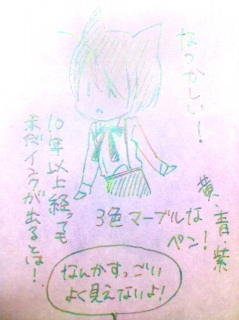 なつかしい!
黄、青、紫
3色マーブルな
ペン!
10年以上経っても
未だインクが出るとは!
なんかすっごい
よく見えないよ!